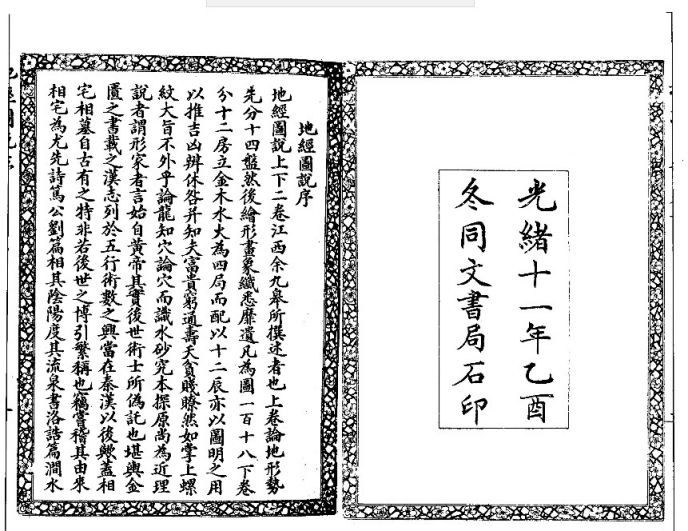 光緒十一年乙酉
冬同文書局石印
地經圖說序
地經圖說上下二卷江西余九皋所撰述者也上卷論地形勢
先分十四盤然後繪形畫象纖悉靡遺凡為圖一百十八下卷
分十二房立金木水火為四局而配以十二辰亦以圖明之用
以推吉凶辨休咎并知夫富貴窮通壽夭貧賤瞭然如掌上螺
紋大旨不外乎論龍知穴論穴而識水砂究本探原尚為近理
說者謂形家者言始自黃帝其實後世術士所偽託也堪輿金
匱之書載之漢志列於五行術數之興當在秦漢以後歟蓋相
宅相墓自古有之特非若後世之博引繁稱也竊嘗稽其由來
相宅為尤先詩篤公劉篇相其陰陽度其流泉書洛誥篇澗水